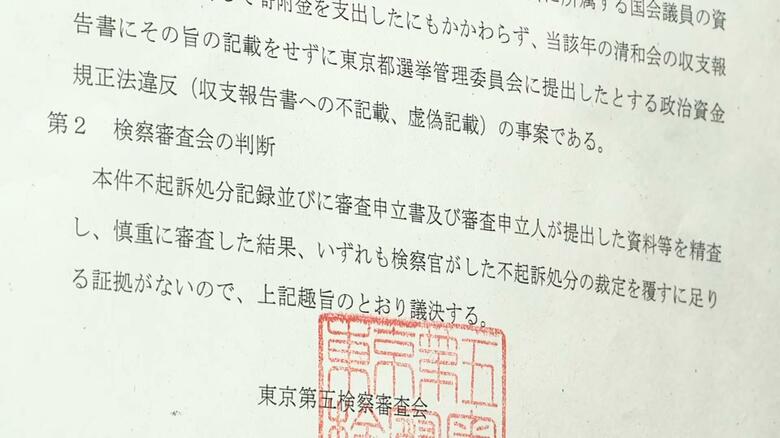 して寄附金を支出したにもかかわらず、当該年の清和会の収支報
所属する国会議員の資
告書にその旨の記載をせずに東京都選挙管理委員会に提出したとする政治資金
規正法違反（収支報告書への不記載、虚偽記載）の事案である。
第２　検察審査会の判断
本件不起訴処分記録並びに審査申立書及び審査申立人が提出した資料等を精査
し、慎重に審査した結果、いずれも検察官がした不起訴処分の裁定を覆すに足り
る証拠がないので、上記趣旨のとおり議決する。
東京第五検察審査会
東京第五